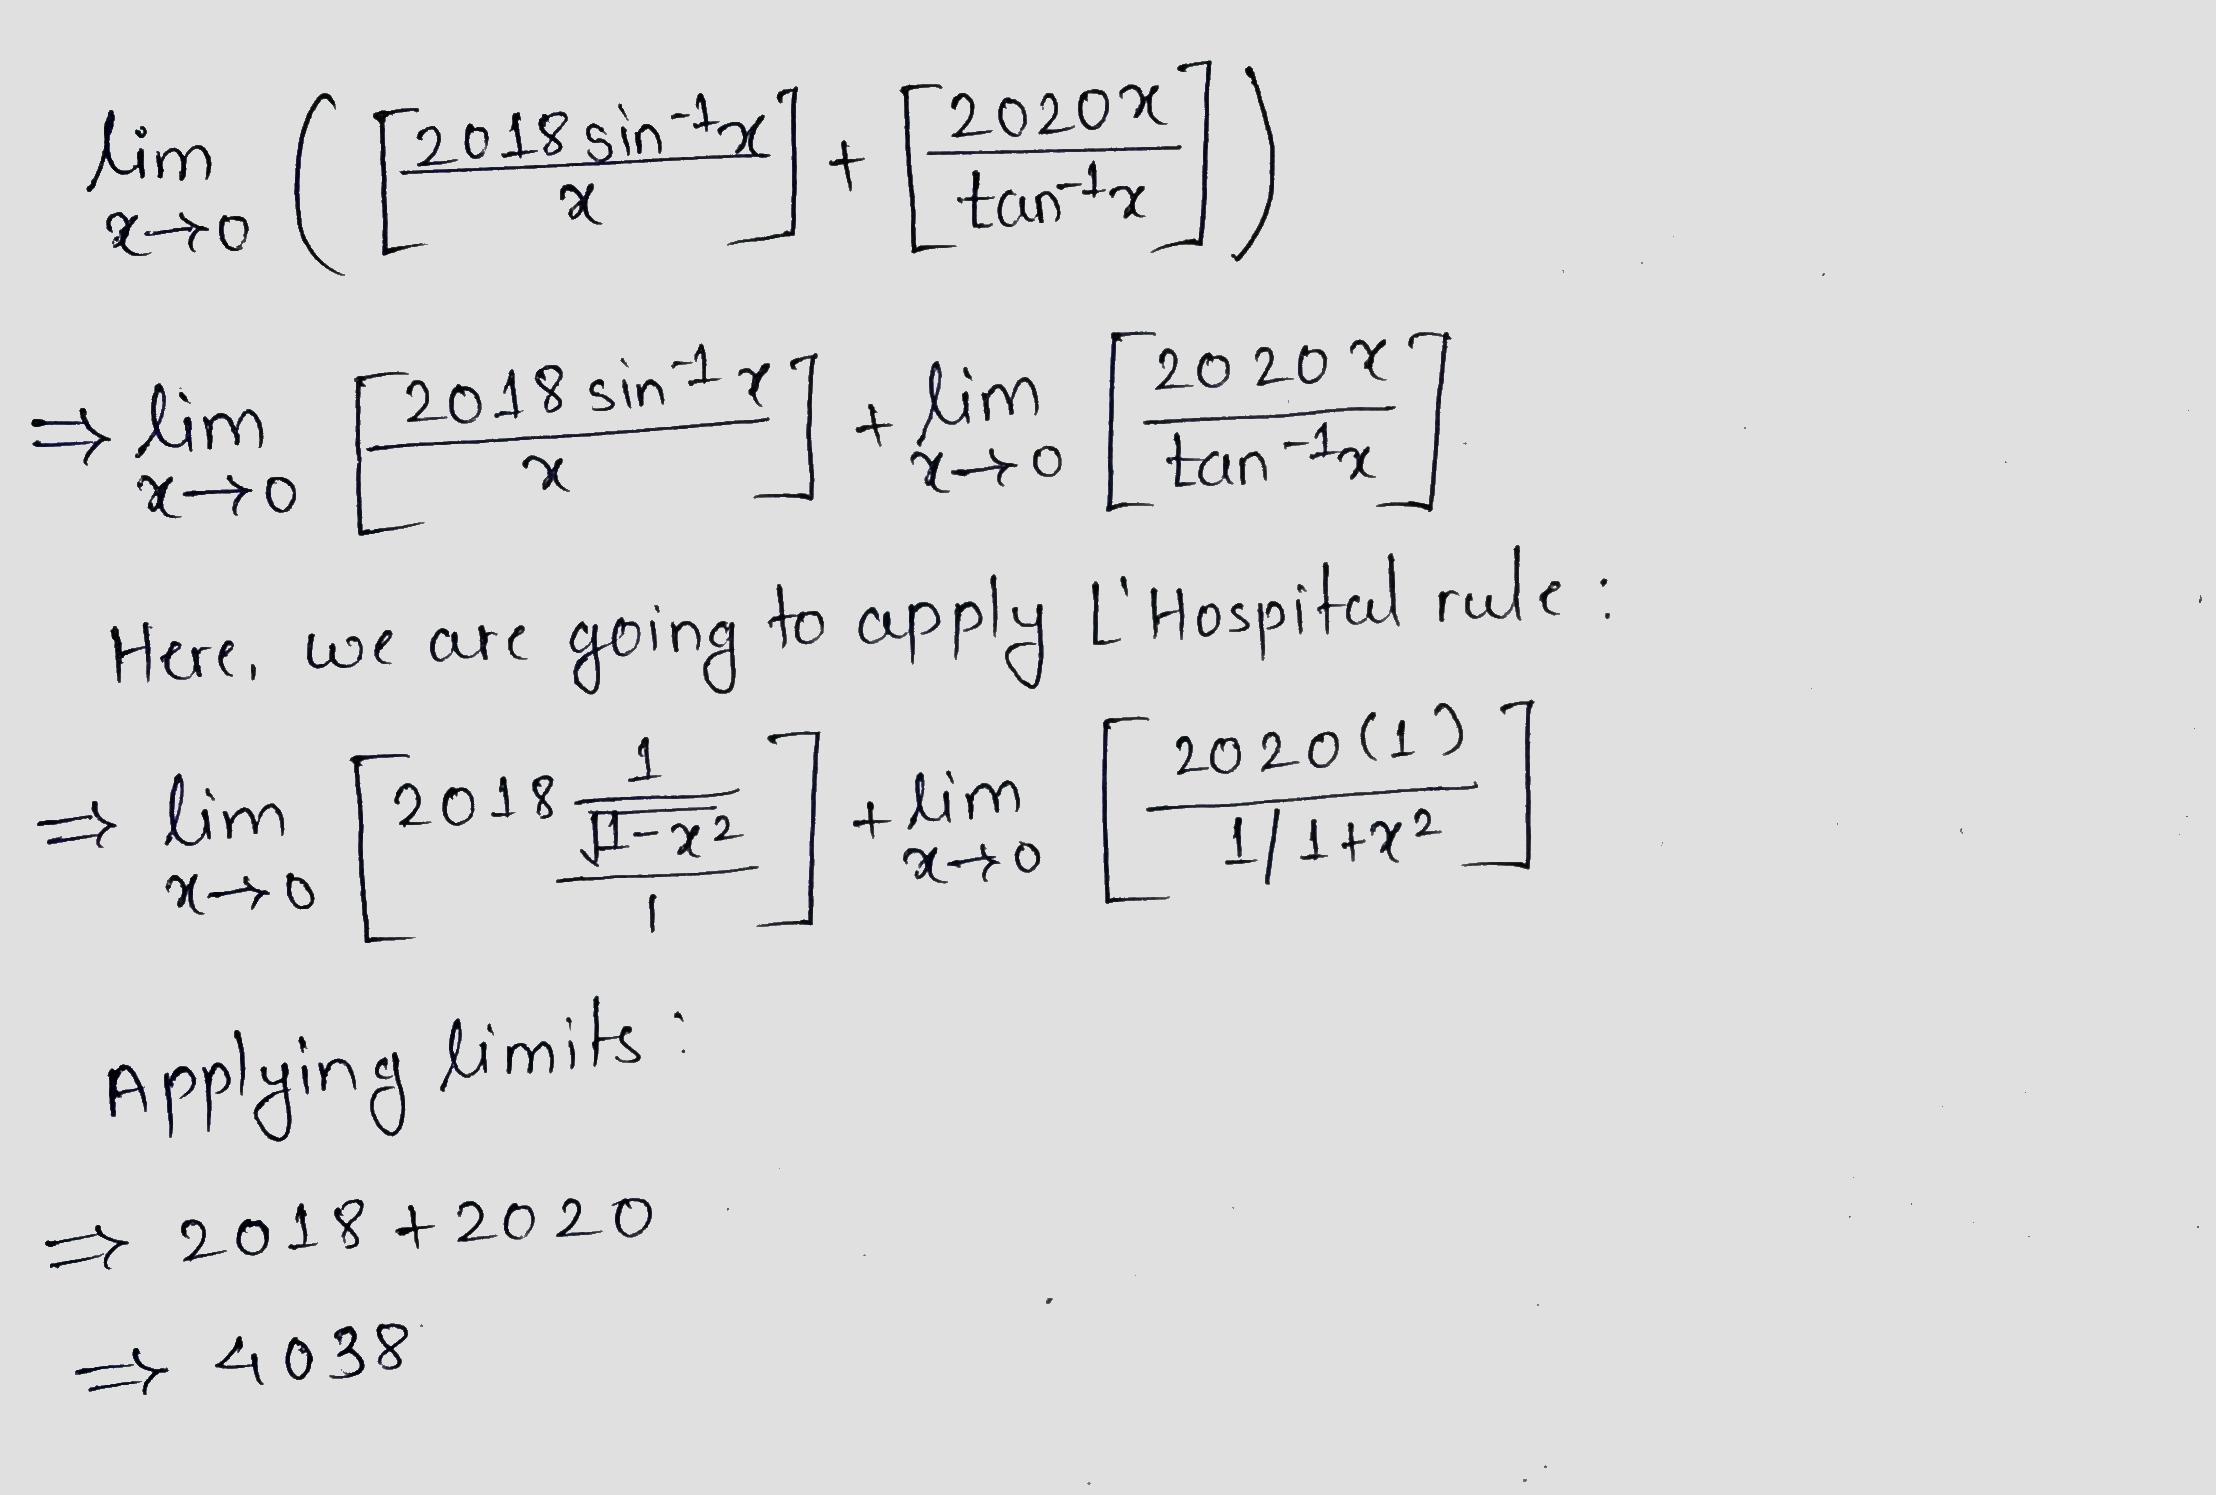 lim x→0 ( [ 2018 sin⁻¹x / x ] + [ 2020x / tan⁻¹x ] )
⇒ lim x→0 [ 2018 sin⁻¹x / x ] + lim x→0 [ 2020x / tan⁻¹x ]
Here, we are going to apply L'Hospital rule :
⇒ lim x→0 [ 2018 1/√1-x² / 1 ] + lim x→0 [ 2020(1) / 1/1+x² ]
Applying limits :
⇒ 2018 + 2020
⇒ 4038